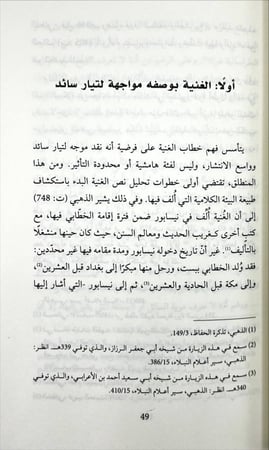 أولًا: الغنية بوصفه مواجهة لتيار سائد
يتأسس فهم خطاب الغنية على فرضية أنه نقد موجه لتيار سائد
وواسع الانتشار، وليس لفئة هامشية أو محدودة التأثير. ومن هذا
المنطلق، تقتضي أولى خطوات تحليل نص الغنية البدء باستكشاف
طبيعة البيئة الكلامية التي أُلف فيها. وفي ذلك يشير الذهبي (ت: 748)
إلى أن الغنية أُلف في نيسابور ضمن فترة إقامة الخطّابي فيها، مع
كتب أخرى كغريب الحديث ومعالم السنن، حيث كان حينها منشغلًا
بالتأليف(1). غير أنّ تاريخ دخوله نيسابور ومدة مقامه فيها غير محدّدين:
فقد وُلد الخطابي ببست، ورحل منها مبكرًا إلى بغداد قبل العشرين(2)،
وإلى مكة قبل الحادية والعشرين(3)، ثم إلى نيسابور -التي أشار إليها
(1) الذهبي، تذكرة الحفاظ، 149/3.
(2) سمع في هذه الزيارة من شيخه أبي جعفر الرزاز، والذي توفي 339هـ. انظر:
الذهبي، سير أعلام النبلاء، 386/15.
(3) سمع في هذه الزيارة من شيخه أبي سعيد أحمد بن الأعرابي، والذي توفي
340هـ. انظر: الذهبي، سير أعلام النبلاء، 410/15.
49